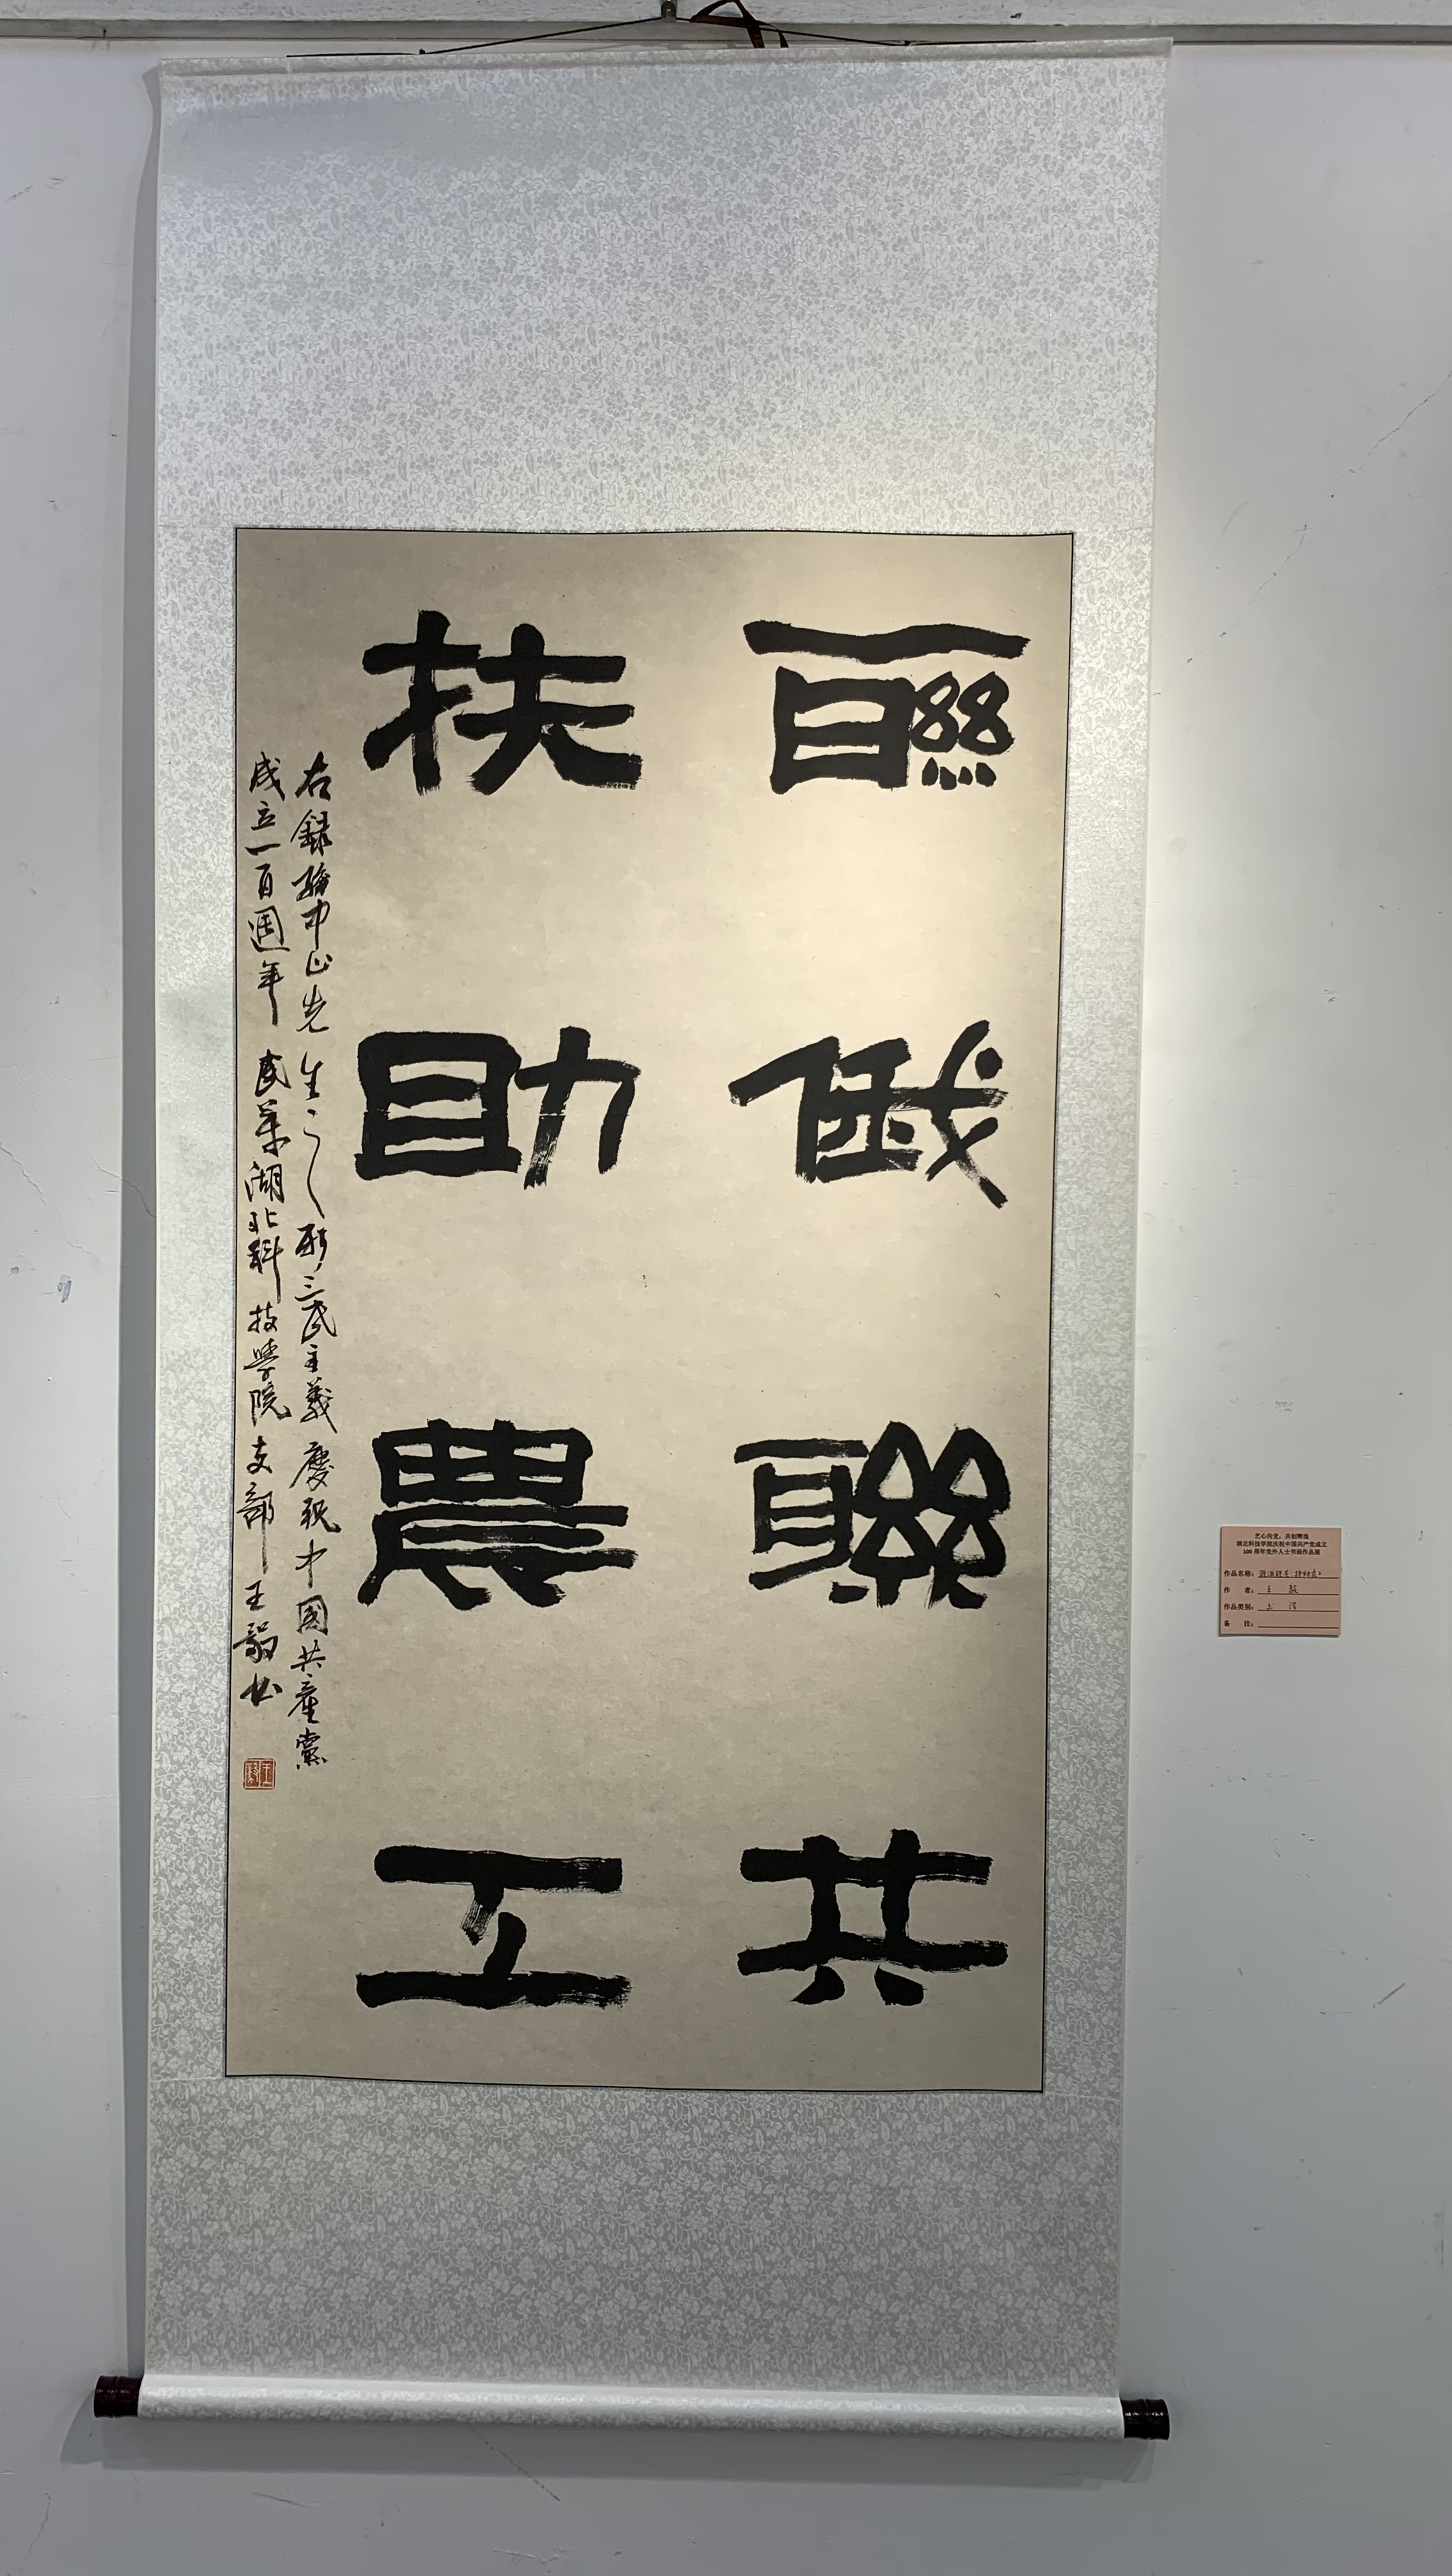 聯俄聯共
扶助農工
右録孫中山先生之新三民主義慶祝中國共產黨
成立一百週年 民革湖北科技學院支部王毅书
王毅
艺心向党，共创辉煌
湖北科技学院庆祝中国共产党成立
100周年党外人士书画作品展
作品名称：联俄联共 扶助农工
作 者：王毅
作品类别：书法
备 注：